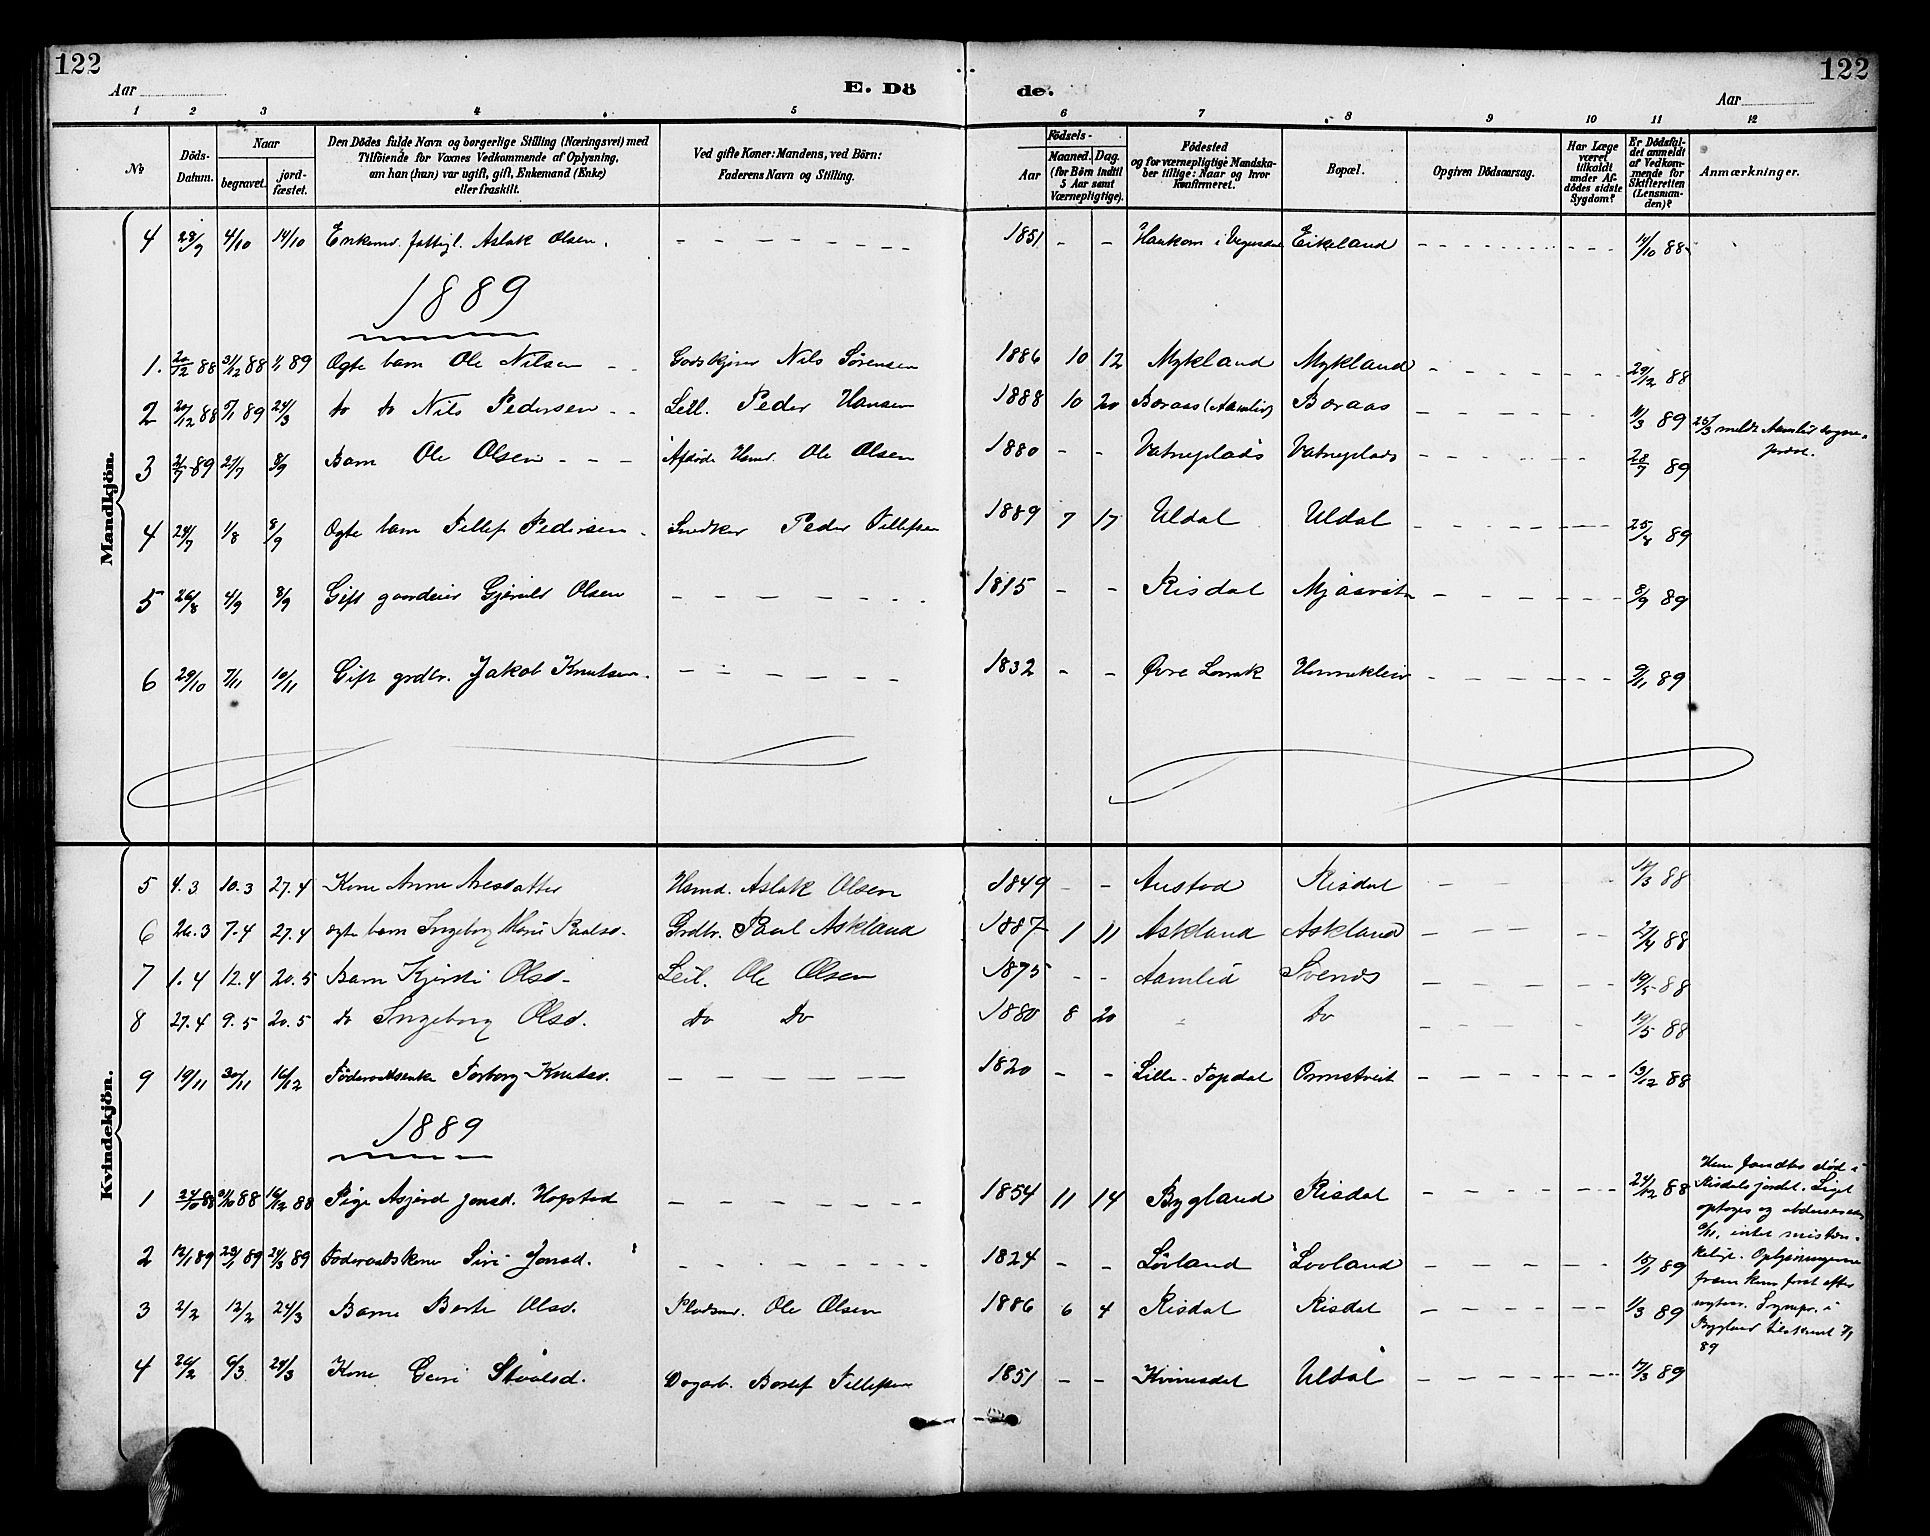 122
122
Aar
E. Dö
de.
Aar
1 2 3 4 5 6 7 8 9 10 11 12
№
Döds-Datum.
Naar
begravet.
jord-fæstet.
Den Dödes fulde Navn og borgerlige Stilling (Næringsvei) med
Tilföiende for Voxnes Vedkommende af Oplysning,
om han (hun) var ugift, gift, Enkemand (Enke)
eller fraskilt.
Ved gifte Koner: Mandens, ved Börn:
Faderens Navn og Stilling.
Födsels-
Aar
Maaned. Dag.
(for Börn indtil
5 Aar samt
Værnepligtige).
Födested
og for værnepligtige Mandska-
ber tillige: Naar og hvor
konfirmeret.
Bopæl.
Opgiven Dödsaarsag.
Har Læge
været
tilkaldt
under Af-
dödes sidste
Sygdom?
Er Dödsfal-
det anmeldt
af Vedkom-
mende for
Skifteretten
(Lensman-
den)?
Anmærkninger.
Mandkjön.
4 28/9 4/10 14/10 Enkemd. fattigl. Aslak Olsen. 1851 - - Haukom i Vegusdal Eikeland 14/10 88
1889
1. 20/12 88 31/12 88 1/1 89 Ægte barn Ole Nilsen Nils Sörensen 1886 10 12 Mykland Mykland 29/12 88
2 20/12 88 5/1 89 24/3 do do Nils Pedersen Leil. Peder Hansen 1888 10 20 Boraas (Aamlid) Boraas 11/3 89 25/3 meldt Aamlid sogne-
præst.
3 21/7 89 27/7 8/9 Barn Ole Olsen Afdöde Hsmd. Ole Olsen 1880 - - Vatneplads Vatneplads 28/7 89
4 24/7 1/8 8/9 Ægte barn Tellef Pedersen Snedker Peder Tellefsen 1889 7 17 Uldal Uldal 25/8 89
5 26/8 4/9 8/9 Gift gaardeier Gjeruld Olsen 1815 - - Risdal Mjaavatn 8/9 89
6 29/10 7/11 10/11 Gift grdbr. Jakob Knutsen. 1832 - - Øvre Lauvrak Hunneklein 9/11 89
Kvindekjön.
5 4.3 10.3 27.4 Kone Anne Aresdatter Hsmd. Aslak Olsen 1849 - - Austad Risdal 14/3 88
6 26.3 7.4 27.4 ægte barn Ingeborg Marie Paalsd. Grdbr. Paal Askland 1887 1 11 Askland Askland 27/4 88
7 1.4 12.4 20.5 Barn Kjersti Olsd. Leil. Ole Olsen 1875 - - Aamlid Svenes 19/5 88
8 27.4 9.5 20.5 do Ingeborg Olsd. do do 1880 8 20 " do 19/5 88
9 19/11 30/11 16/12 Föderaadsenke Torborg Knutsd. 1820 - - Lille-Topdal Ormstveit 13/12 88
1889
1 24/10 88 31/10 88 16/12 88 Pige Asjerd Jonsd. Hofstad 1854 11 14 Bygland Risdal 24/12 88 Hun fandtes död i
Risdalsjordet. Liget
optoges og obduseredes
intet mistæn-
keligt. Oplysningerne
fremkom först efter
nytaar. i
Bygland tilskrevet 7/1
89
2 12/1 89 23/1 89 24/3 89 Föderaadskone Siri Jonsd. 1824 - - Lövland Lovland 15/1 89
3 2/2 12/2 24/3 Barn Berte Olsd. Pladsmd. Ole Olsen 1886 6 4 Risdal Risdal 1/3 89
4 26/2 6/3 24/3 Kone Guri Staalsd. Dagarb. Bertef Tellefsen 1851 - - Kvinesdal Uldal 17/3 89